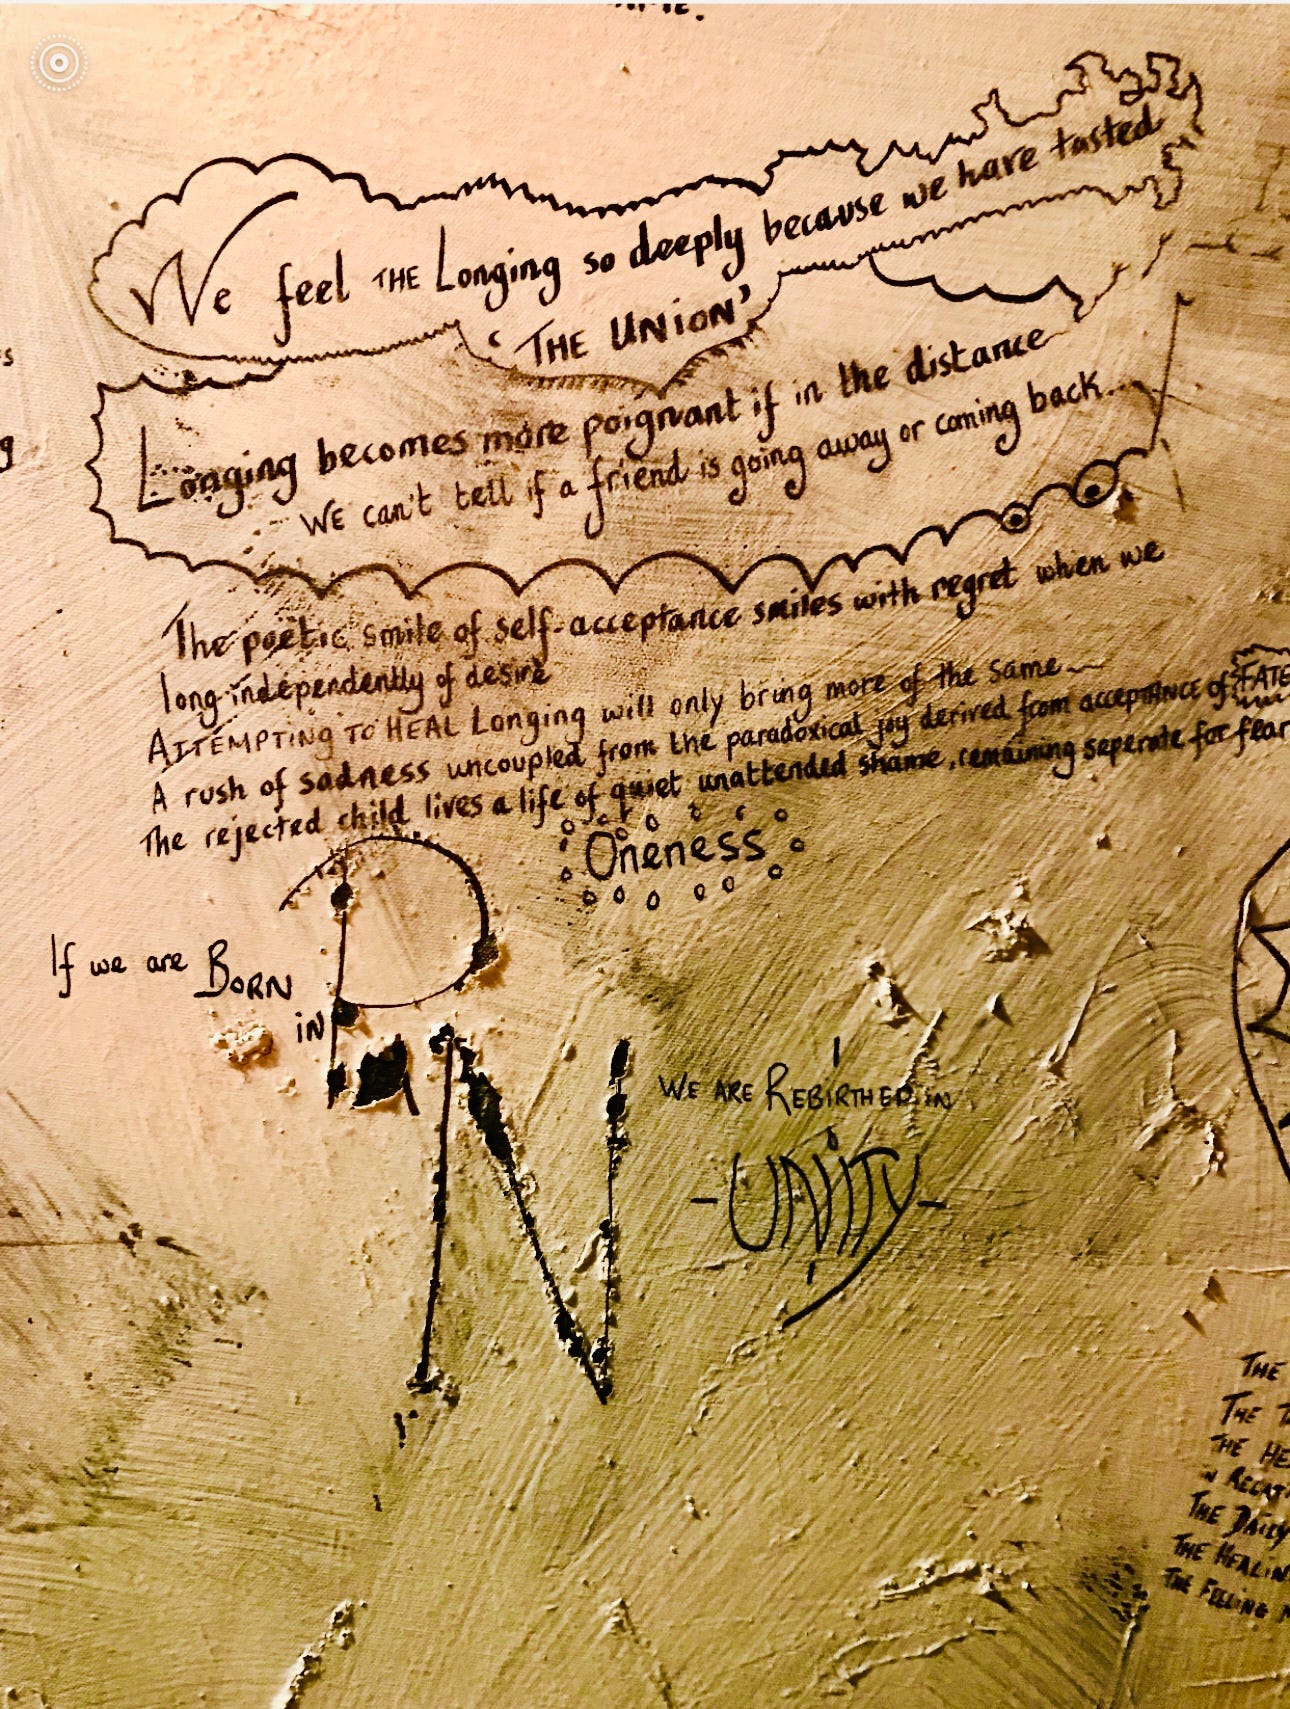 We feel THE Longing so deeply because we have tasted
'THE UNION'
Longing becomes more poignant if in the distance
WE can't tell if a friend is going away or coming back...
The poetic smile of self-acceptance smiles with regret when we
long independently of desire
ATTEMPTING TO HEAL Longing will only bring more of the same
A rush of sadness uncoupled from the paradoxical joy derived from accepTANCE of FATE
The rejected child lives a life of quiet unattended shame, remaining seperate for fear
Oneness
If we are BORN
iN
PAiN
WE ARE REBIRTHED iN
-UNiTY-
THE
THE
THE
iN
THE DAiLY
THE
THE FEELiNG